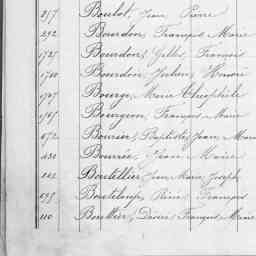 Boulot, Jean Pierre
292 Bourdon, François Marie
1727 Bourdon, Gilles François
1740 Bourdon, Julien Honoré
Bourge, Marie Théophile
Bourgeon, François Marie
672 Boursier, Baptiste Jean Marie
Bourrée, Jean Marie
Boutellier, Jean Marie Joseph
Bouteloup, René François
110 Désiré François Marie